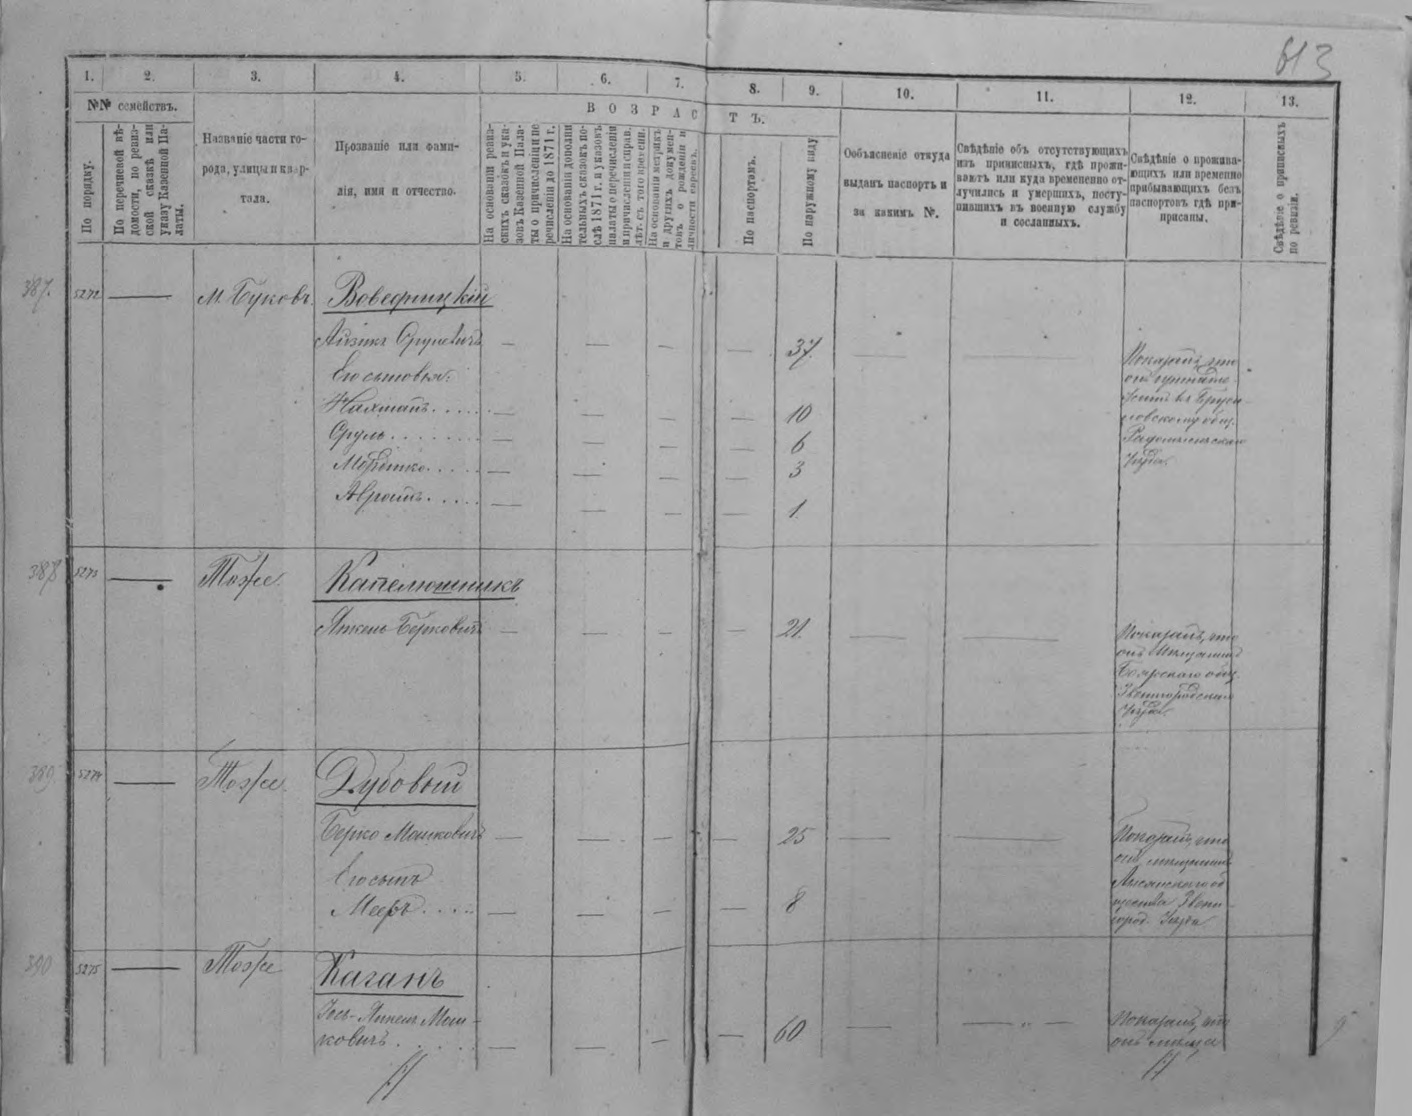 613
1. 2. 3. 4. 5. 6. 7. 8. 9. 10. 11. 12. 13.
№№ семействъ.
По порядку.
По перечневой вѣ-
домости, по ревиз-
ской сказкѣ или
указу Казенной Па-
латы.
Названіе части го-
рода, улицы и квар-
тала.
Прозваніе или фами-
лія, имя и отчество.
ВОЗРАСТЪ.
На основаніи ревиз-
скихъ сказокъ и ука-
зовъ Казенной Пала-
ты о причисленіи и пе
речисленіи до 1871 г.
На основаніи дополни
тельныхъ сказокъ по-
слѣ 1871 г. и указовъ
палаты о перечисленіи
и причисленіи и справ.
лѣт. съ того времени.
На основаніи метрикъ
и другихъ докумен-
товъ о рожденіи и
личности евреевъ.
По паспортамъ.
По наружному виду
Ообъясненіе откуда
выданъ паспортъ и
за какимъ №.
Свѣдѣніе объ отсутствующихъ
изъ приписныхъ, гдѣ прожи-
ваютъ или куда временено от-
лучились и умершихъ, посту-
пившихъ въ военную службу
и сосланныхъ.
Свѣдѣніе о прожива-
ющихъ или временно
прибывающихъ безъ
паспортовъ гдѣ при-
писаны.
Свѣдѣніе о приписныхъ
по ревизіи.
387. 5272 — М. Буковъ.
Айзикъ Срулевичъ — — — — 37. — —
Его сыновья:
Нахманъ..... — — — — 10
Сруль........ — — — — 6
Мордко..... — — — — 3
Аврамъ..... — — — — 1
Показалъ, что
онъ
ловскому общ.
Радомысльскаго
уѣзда
388 5273 — Тоже Капелюшникъ
Янкель Берковичъ — — — — 21. — —
Показалъ, что
онъ мѣщанинъ
Боярскаго общ.
Звенигородскаго
уѣзда
389. 5274 — Тоже Дубовый
Берко Мошковичъ — — — — 25 — —
Его сынъ
Мееръ.... — — — — 8
Показалъ, что
онъ мѣщанинъ
Лысянскаго об
щества Звени-
город. Уѣзда
390 5275 — Тоже Каганъ
Іось-Янкель Мош-
ковичъ..... — — — — 60 — —
Показалъ, что
онъ мѣща